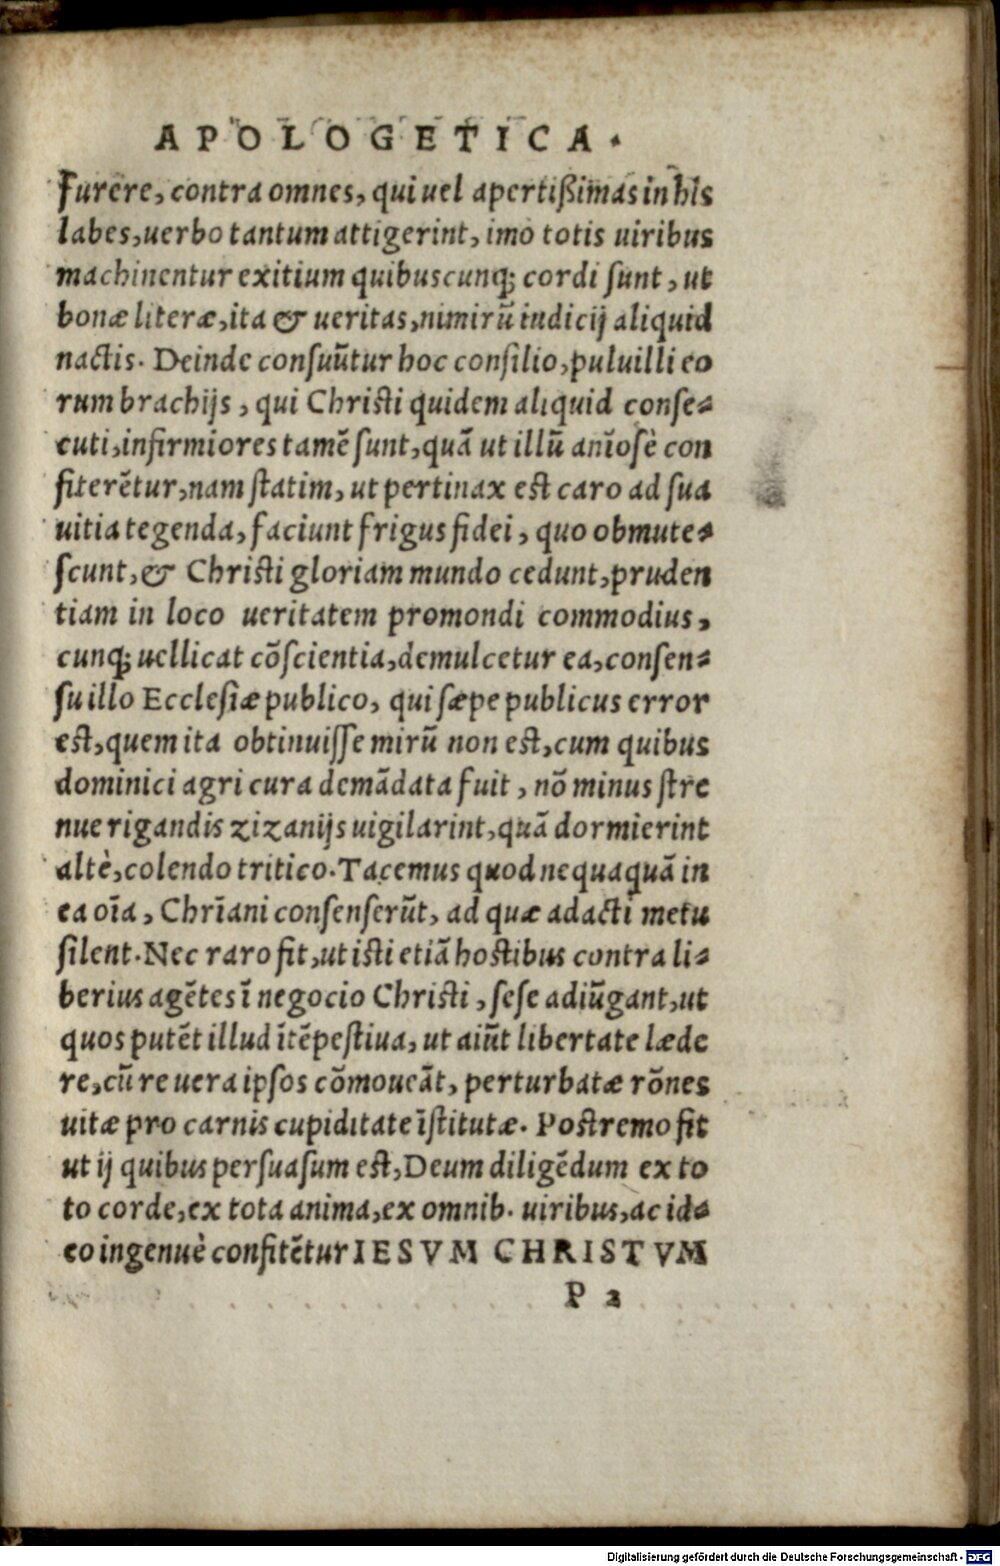 APOLOGETICA.
furere, contra omnes, qui uel apertißimas in his
labes, uerbo tantum attigerint, imò totis uiribus
machinentur exitium quibuscunq; cordi ſunt, ut
bonæ literæ, ita & ueritas, nimirũ iudicij aliquid
nactis. Deinde conſuũtur hoc conſilio, puluilli eo
rum brachijs, qui Chriſti quidem aliquid conſe-
cuti, infirmiores tamẽ ſunt, quã ut illũ anĩoſè con
fiterẽtur, nam ſtatim, ut pertinax eſt caro ad ſua
uitia tegenda, faciunt frigus fidei, quo obmute-
ſcunt, & Chriſti gloriam mundo cedunt, pruden
tiam in loco ueritatem promondi commodius,
cunq; uellicat cõſcientia, demulcetur ea, conſen-
ſu illo Eccleſiæ publico, qui ſæpe publicus error
eſt, quem ita obtinuiſſe mirũ non eſt, cum quibus
dominici agri cura demãdata fuit, nõ minus ſtre
nue rigandis zizanijs uigilarint, quã dormierint
altè, colendo tritico. Tacemus quod nequaquã in
ea oĩa, Chrĩani conſenſerũt, ad quæ adacti metu
ſilent. Nec raro fit, ut iſti etiã hoſtibus contra li-
berius agẽtes ĩ negocio Chriſti, ſeſe adiũgant, ut
quos putẽt illud ĩtẽpeſtiua, ut aiũt libertate læde
re, cũ re uera ipſos cõmoueãt, perturbatæ rõnes
uitæ pro carnis cupiditate ĩſtitutæ. Poſtremo fit
ut ij quibus perſuaſum eſt, Deum diligẽdum ex to
to corde, ex tota anima, ex omnib. uiribus, ac id-
eo ingenuè confitẽtur IESVM CHRISTVM
P 2
Digitalisierung gefördert durch die Deutsche Forschungsgemeinschaft - DFG